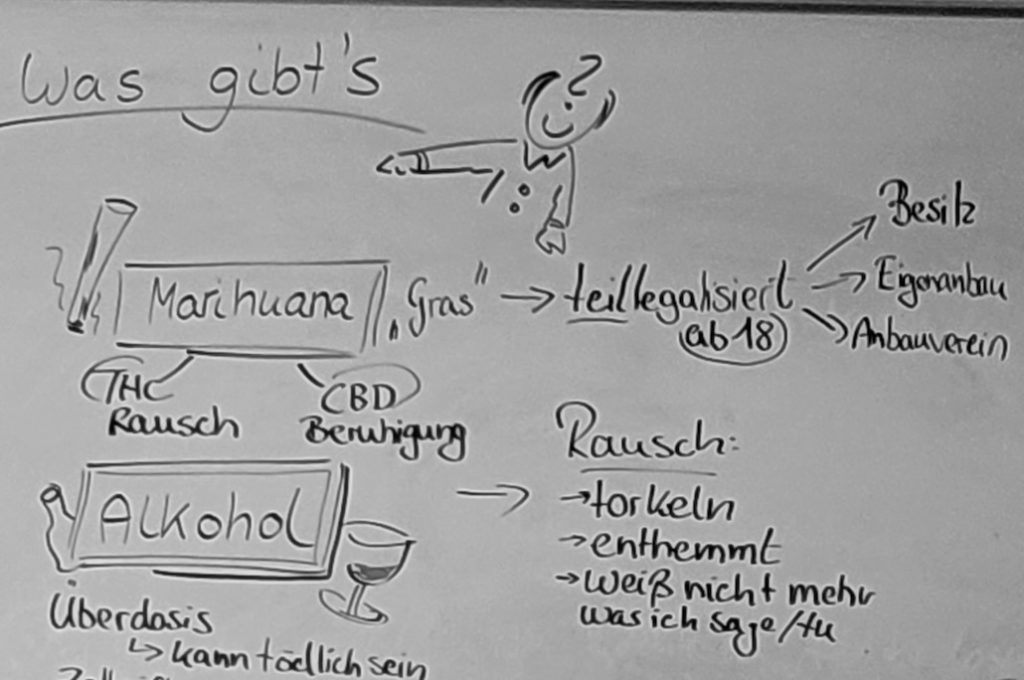 Was gibt's
?
Marihuana „Gras" → teillegalisiert
(ab 18)
Besitz
Eigenanbau
Anbauverein
THC
Rausch
CBD
Beruhigung
Alkohol →
Überdosis
↳ kann tödlich sein
Rausch:
→ torkeln
→ enthemmt
→ weiß nicht mehr
was ich sage/tu